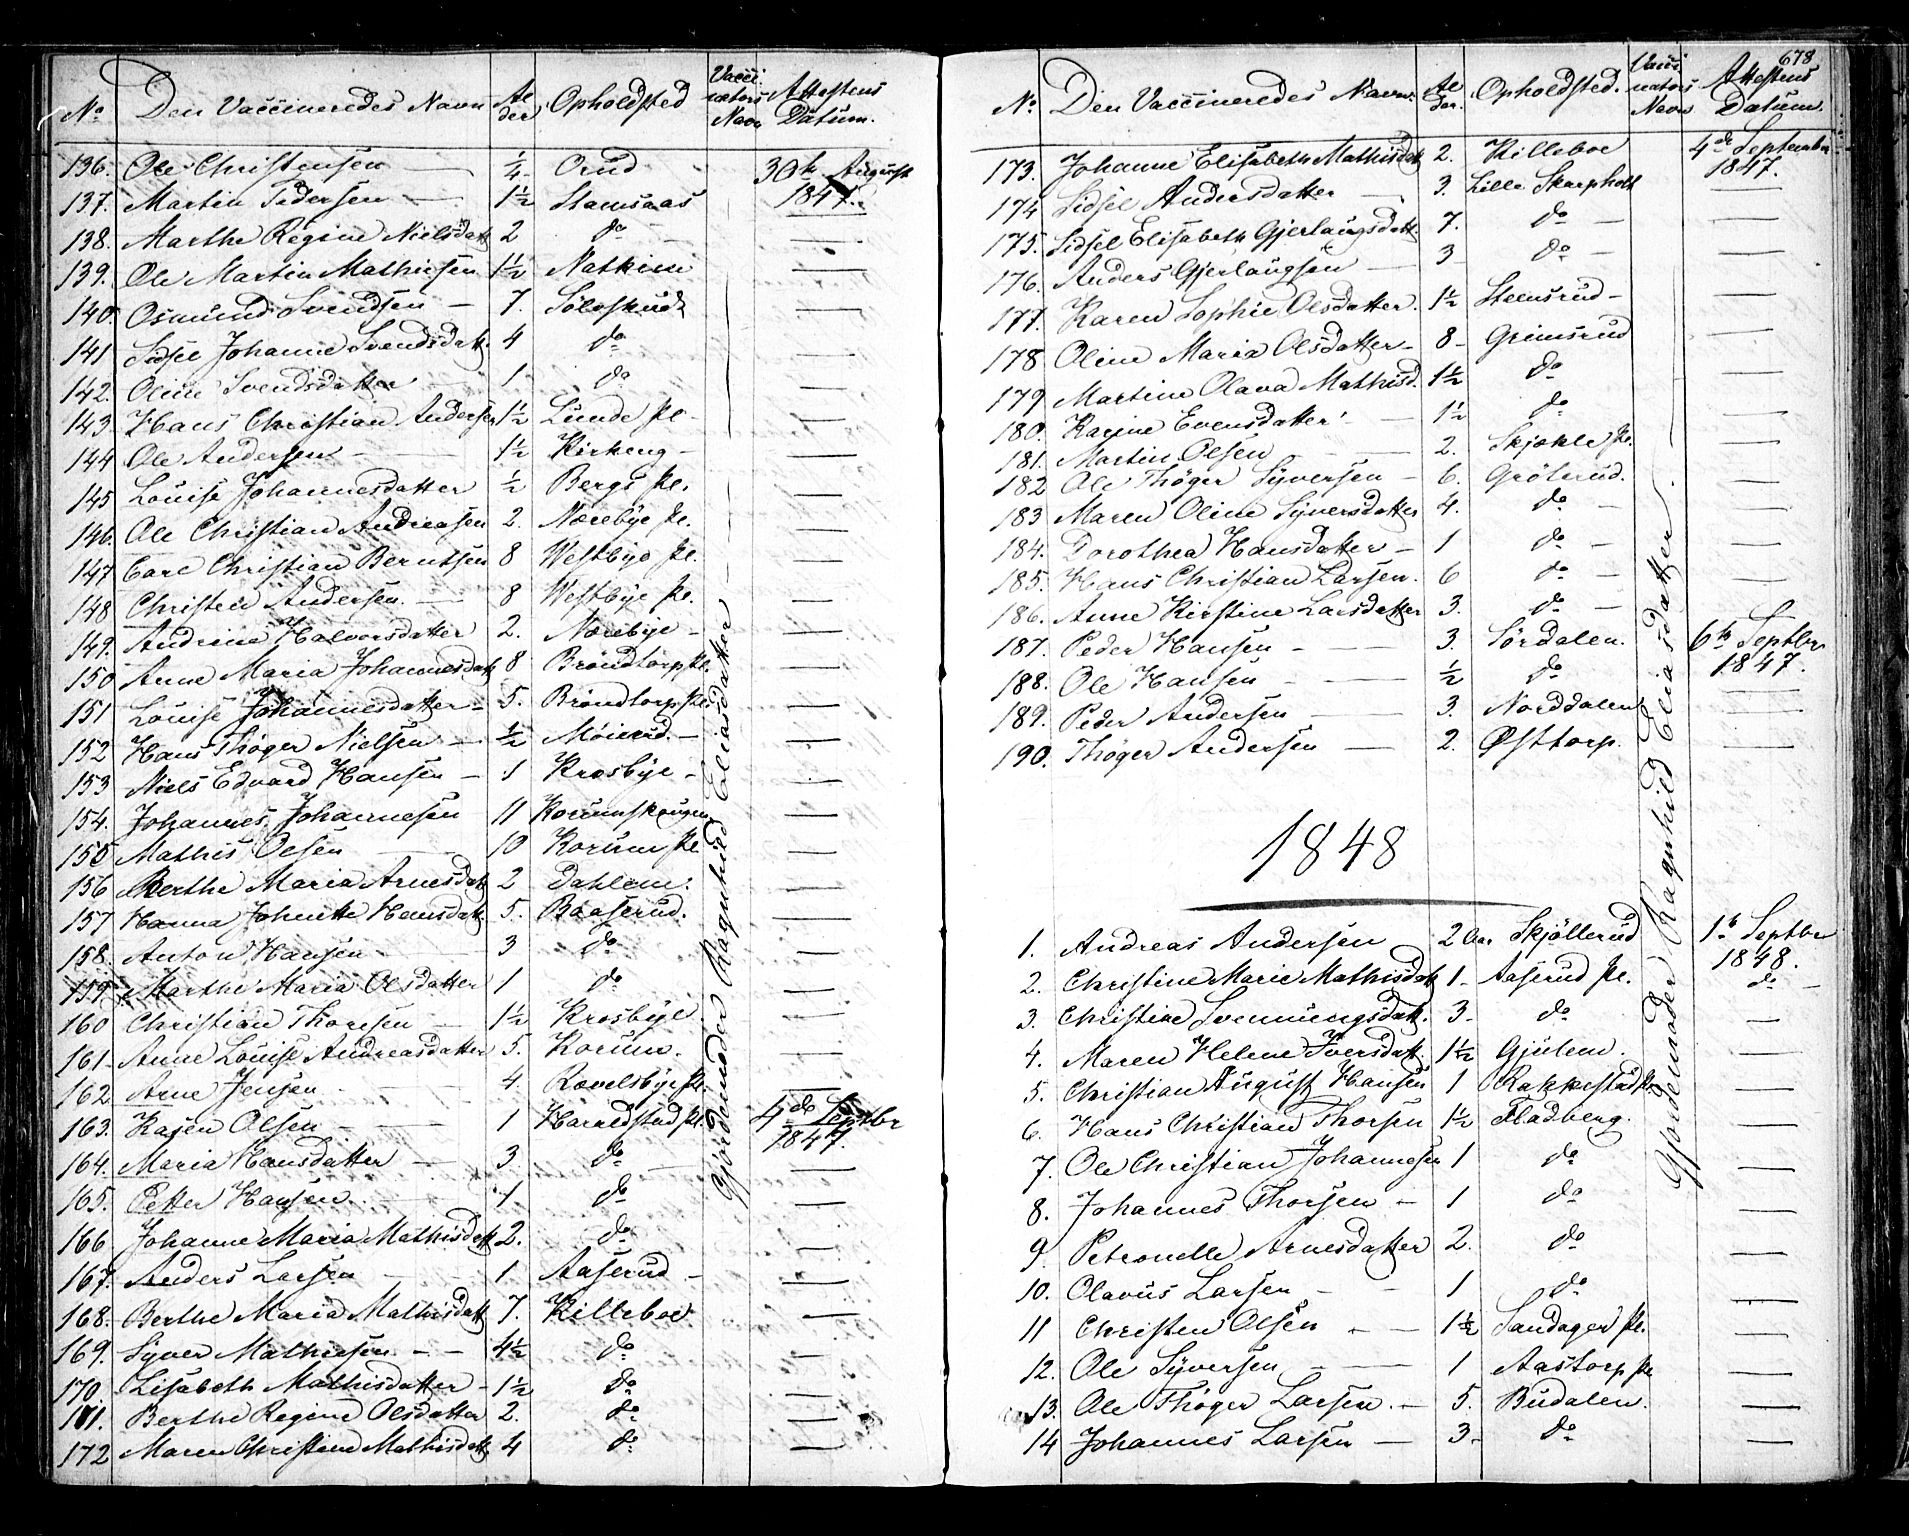 No Den Vaccineredes Navn Alder Opholdsted Vaccinators Navn Attestens Datum.
136. Ole Christensen ½ Orud 30te August
137. Martin Pedersen 1½ Stamsaas 1847.
138. Marthe Regine Nielsdatt 2 do
139. Ole Martin Mathiesen 1½ Natkim
140. Osmund Svendsen 7. Soloskudt
141 Sidsel Johanne Svendsdatt. 4 do
142. Oline Svendsdatter 1 do
143. Hans Christian Andersen 1½ Lunde Pl.
144 Ole Andersen 1½ Kirkeng
145 Louise Johannesdatter ½ Bergs Pl.
146. Ole Christian Andreasen 2. Nærebye Pl.
147 Carl Christian Berntsen 8 Westbye Pl.
148 Christen Andersen 8 Westbye Pl.
149. Andrine Halvorsdatter 2. Nærebye
150 Anne Maria Johannesdatt 8 Bröndtorp Pl.
151 Louise Johannesdatter 5. Bröndtorp Pl.
152 Hans Thöger Nielsen ½ Möierud.
153 Niels Edvard Hansen 1 Krosbye
154. Johannes Johannesen 11 Korumskougen
155 Mathis Olsen 10 Korum Pl
156 Berthe Maria Arnesdatt 2 Dahlem.
157 Hanna Johnette Hansdatt. 5. Baaserud.
158. Anton Hansen 3 do
159. Marthe Maria Olsdatter 1 do
160 Christian Thoresen 1½ Krosbye
161. Anne Louise Andreasdatter 5. Korum.
162 Arne Jensen 4. Rævelsbye Pl.
163. Karen Olsen 1 Haraldstad Pl. 4de Septbr
164. Maria Hansdatter 3 do 1847.
165. Petter Hansen 1 do
166 Johanne Maria Mathisdatt 2. do
167. Anders Larsen 1 Aaserud
168. Berthe Maria Mathisdatt 7. Killeboe
169. Syver Mathiesen 4½ do
170. Lisabeth Mathisdatter 1½ do
171. Berthe Regine Olsdatter 2. do
172 Maren Christine Mathisdatt 4 do
Gjordemoder Ragnhild Eliasdatter
678
No. Den Vaccineredes Navn. Alder. Opholdsted. Vaccinators Navn Attestens Datum.
173. Johanne Elisabeth Mathisdatt 2. Killeboe 4de September
174 Sidsel Andersdatter 3. Lille Skarpholt 1847.
175. Sidsel Elisabeth Gjerlaugsdatt. 7. do
176. Anders Gjerlaugsen 3 do
177. Karen Sophie Olsdatter. 1½ Steensrud
178 Oline Maria Olsdatter 8 Grimsrud
179 Martine Olava Mathisd. 1½ do
180. Karine Evensdatter 1½ do
181. Martin Olsen 2. Skjækle Pl.
182 Ole Thöger Syversen 6. Gröterud.
183 Maren Oline Syversdatter 4. do
184. Dorothea Hansdatter 1 do
185. Hans Christian Larsen. 6 do
186. Anne Kirstine Larsdatter 3. do
187. Peder Hansen 3. Sördalen. 6te Septbr
188. Ole Hansen ½ do 1847.
189. Peder Andersen 3. Norddalen
190. Thöger Andersen 2. Østtorp.
1848
1. Andreas Andersen 2 Aar Skjöllerud 1te Septbr
2. Christine Marie Mathisdatt 1 Aaserud Pl. 1848.
3. Christine Svenningsdatt. 3 do do
4. Maren Helene Iversdatt. 1½ Gjulem.
5. Christian August Hansen 1 Rakkestad Pl.
6. Hans Christian Thorsen 1½ Fladberg.
7. Ole Christian Johannesen 1 do
8. Johannes Thorsen 1 do
9. Petronelle Arnesdatter 2. do
10. Olavus Larsen 1 do
11 Christen Olsen 1½ Sandager Pl.
12. Ole Syversen 1 Aastorp Pl
13. Ole Thöger Larsen. 5. Budalen.
14 Johannes Larsen 3 do
Gjordemoder Ragnhild Eliasdatter.